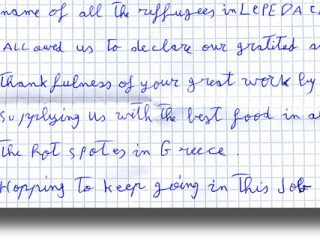 name of all the reffugees in LEPEDA
ALLowed us to declare our gratited
thankfulness of your great work by
supplying us with the best food in
the Hot spotes in Greece.
Hopping to keep going in this Job